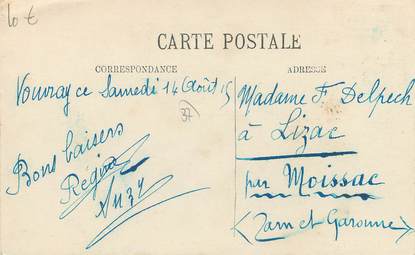 10 €
CARTE POSTALE
CORRESPONDANCE
ADRESSE
Vouvray ce Samedi 14 Août 15
37
Bons baisers
Regina
Madame F. Delpech
à Lizac
par Moissac
(Tarn et Garonne)